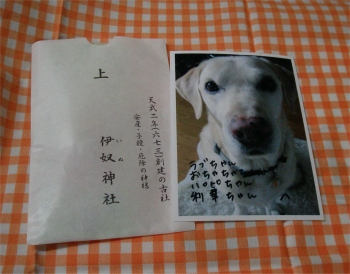 天武二年(六七三)創建の古社
安産・子授・厄除の神様
上
いぬ
伊奴神社
ラブちゃん
ちゃん
ちゃん
ちゃん へ